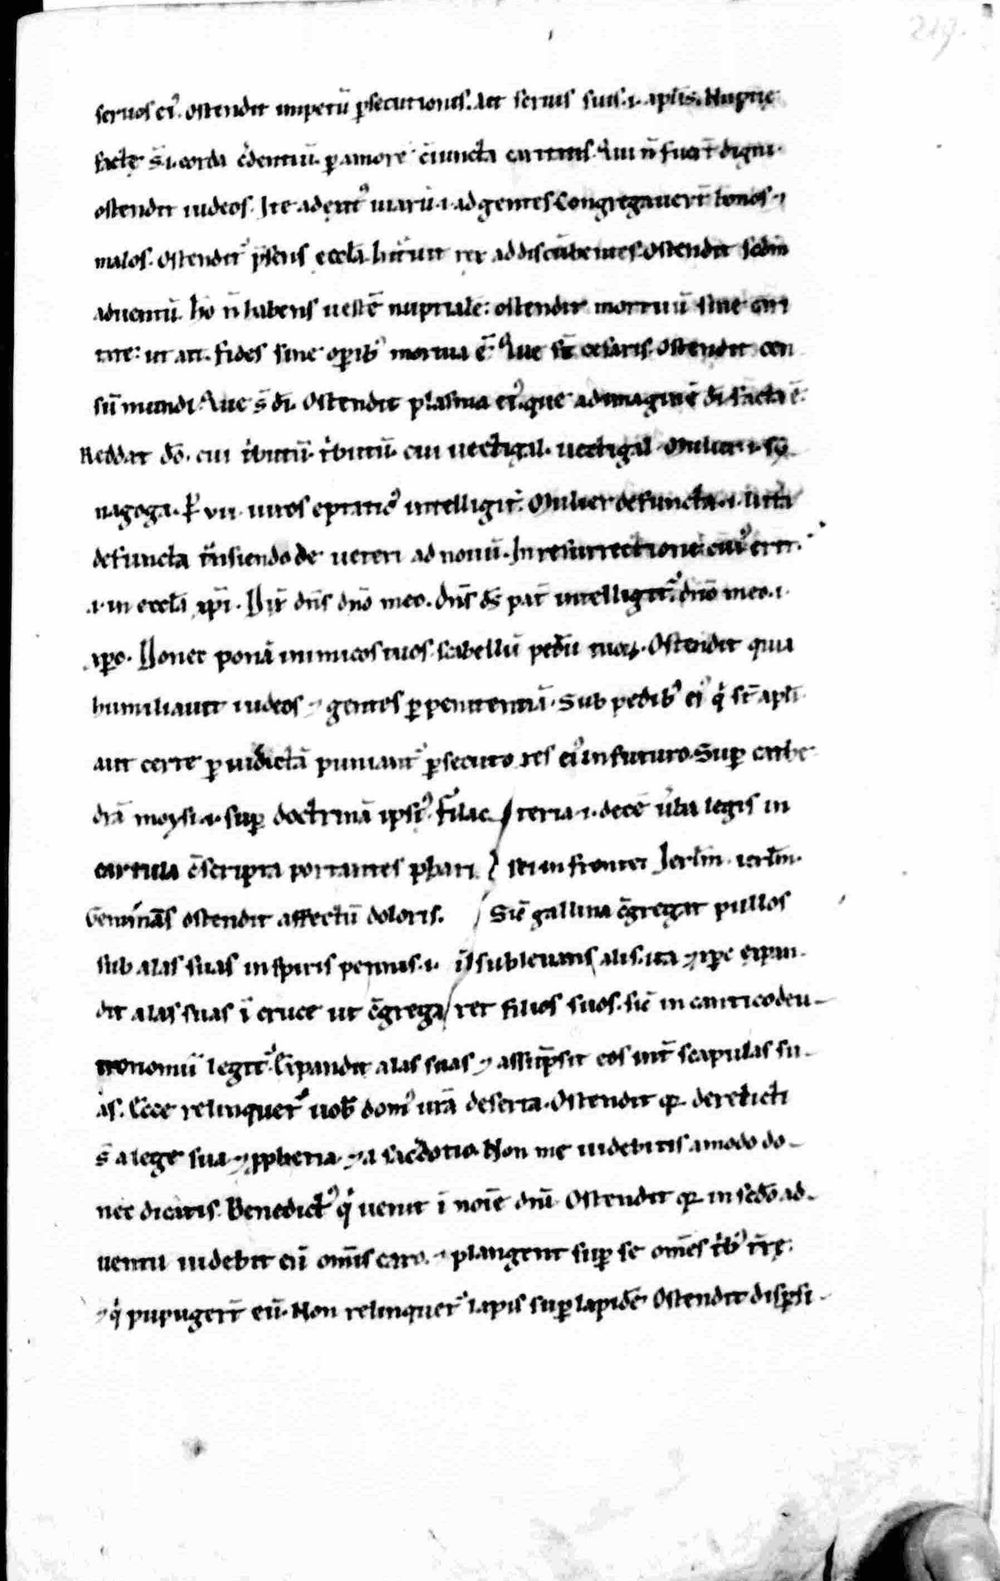 219.
seruos ei᷒. ostendit impetū ꝑsecutionis. Ait seruis suis .i. apl̄is. Nuptię
factę s̄ .i. corda c̄dentiū. ꝑ amorē c̄iuncta caritatis. Qui n̄ fuer̄t digni.
ostendit iudeos. Ite ad exit᷒ uiarū .i. ad gentes. Congregauer̄t bonos ⁊
malos. Ostendit p̄sens eccl̄a. Int̄uit rex ad discūbentes. Ostendit sc̄dm
aduentū. ho n̄ habens uestē nuptialē: ostendit mortuū sine cari
tate: ut ait. fides sine oꝑib᷒ mortua ē. Que s̄t cesaris. Ostendit cen
sū mundi. Que s̄ dī. Ostendit plasma ei᷒. que ad imaginē dī facta ē.
Reddat dō. cui t̄butū. t̄butū. cui uectigal. uectigal. Mulier .i. sy
nagoga. ꝑ vii. uiros intelligit᷒. Mulier defuncta .i. uita
defuncta t̄nsiendo de ueteri ad nouū. In resurrectione cui᷒ erit.
.i. in eccl̄a xp̄i. Dix̄ dn̄s dn̄o meo. dn̄s ds̄ pat̄ intelligit᷒. dn̄o meo .i.
xp̄o. Donec ponā inimicos tuos scabellū pedū tuoꝝ. Ostendit quia
humiliauit iudeos ⁊ gentes ꝑ penitentiā. Sub pedib᷒ ei᷒ q̇ st̄ apl̄i
aut certe ꝑ uidictā puniant᷒ ꝑsecuto res ei᷒ in futuro. Suꝑ cathe
drā moysi .i. suꝑ doctrinā ipsi᷒. filac teria .i. decē ūba legis in
cartula c̄scripta portantes phari sei in frontei. Ierl̄m. ierl̄m.
Geminās ostendit affectū doloris. Sic̄ gallina c̄gregat pullos
sub alas suas in spiris pennas .i. ił subleuans alis. ita ⁊ xp̄c expan
dit alas suas ī cruce ut c̄grega ret filios suos. sic̄ in cantico deu-
tronomii legit᷒. Expandit alas suas ⁊ assūpsit eos int̄ scapulas su-
as. Ecce relinquet᷒ uob̄ dom᷒ ur̄a deserta. Ostendit ꝙ derelicti
s̄ a lege sua ⁊ ꝓphetia ⁊ a sac̄dotio. Non me uidebitis amodo do-
nec dicatis. Benedict᷒ q̇ uenit ī noīe dn̄i. Ostendit ꝙ in sc̄do ad-
uentu uidebit eū omīs caro. ⁊ plangent suꝑ se omēs t̄b᷒ tr̄ę.
⁊ q̇ pupugert̄ eū. Non relinquet᷒ lapis suꝑ lapidē. Ostendit disꝑsi-